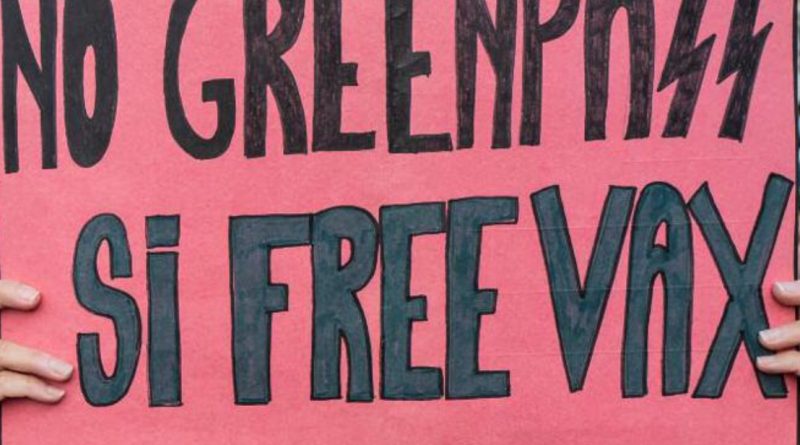 NO GREENPASS
Si FREE VAX